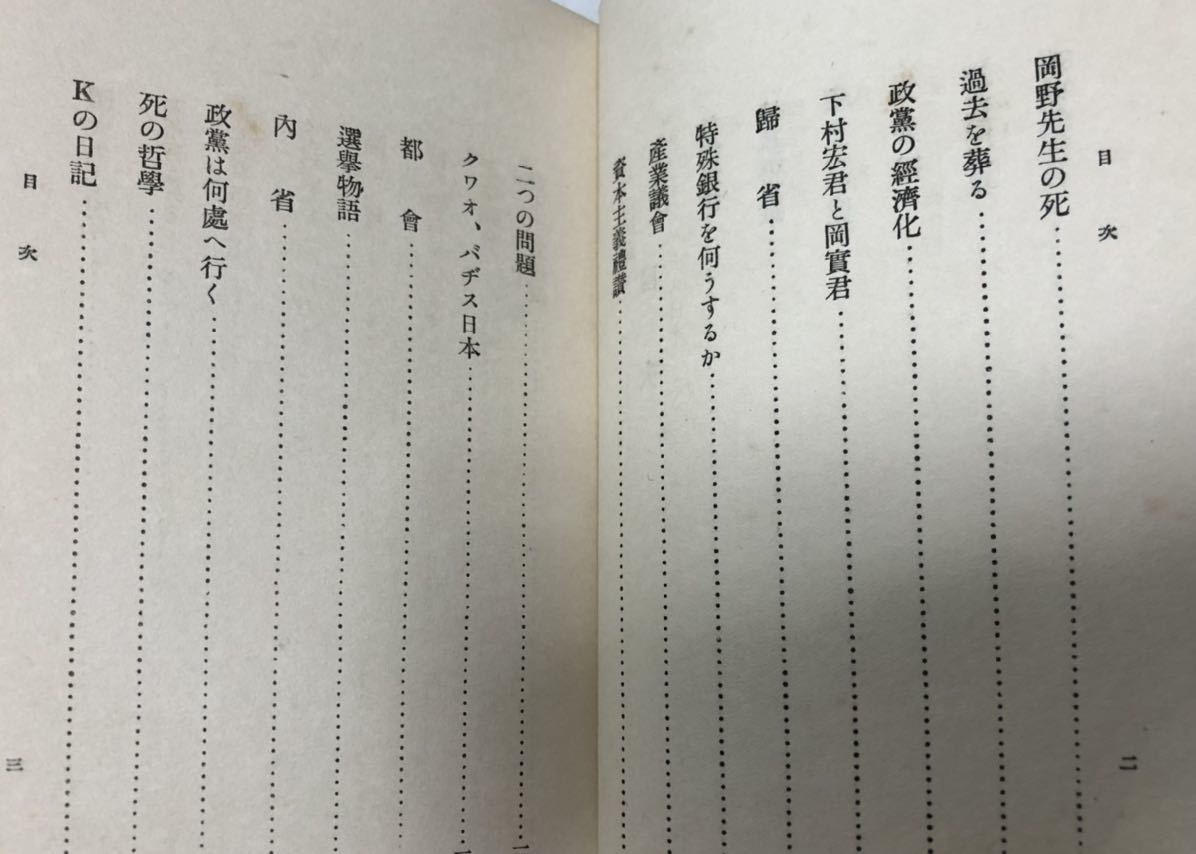 目次
岡野先生の死
過去を葬る
政黨の經濟化
下村宏君と岡實君
歸省
特殊銀行を何うするか
產業議會
資本主義禮讃
二
二つの問題
クワオ、バヂス日本
都會
選擧物語
內省
政黨は何處へ行く
死の哲學
Kの日記
目次
三